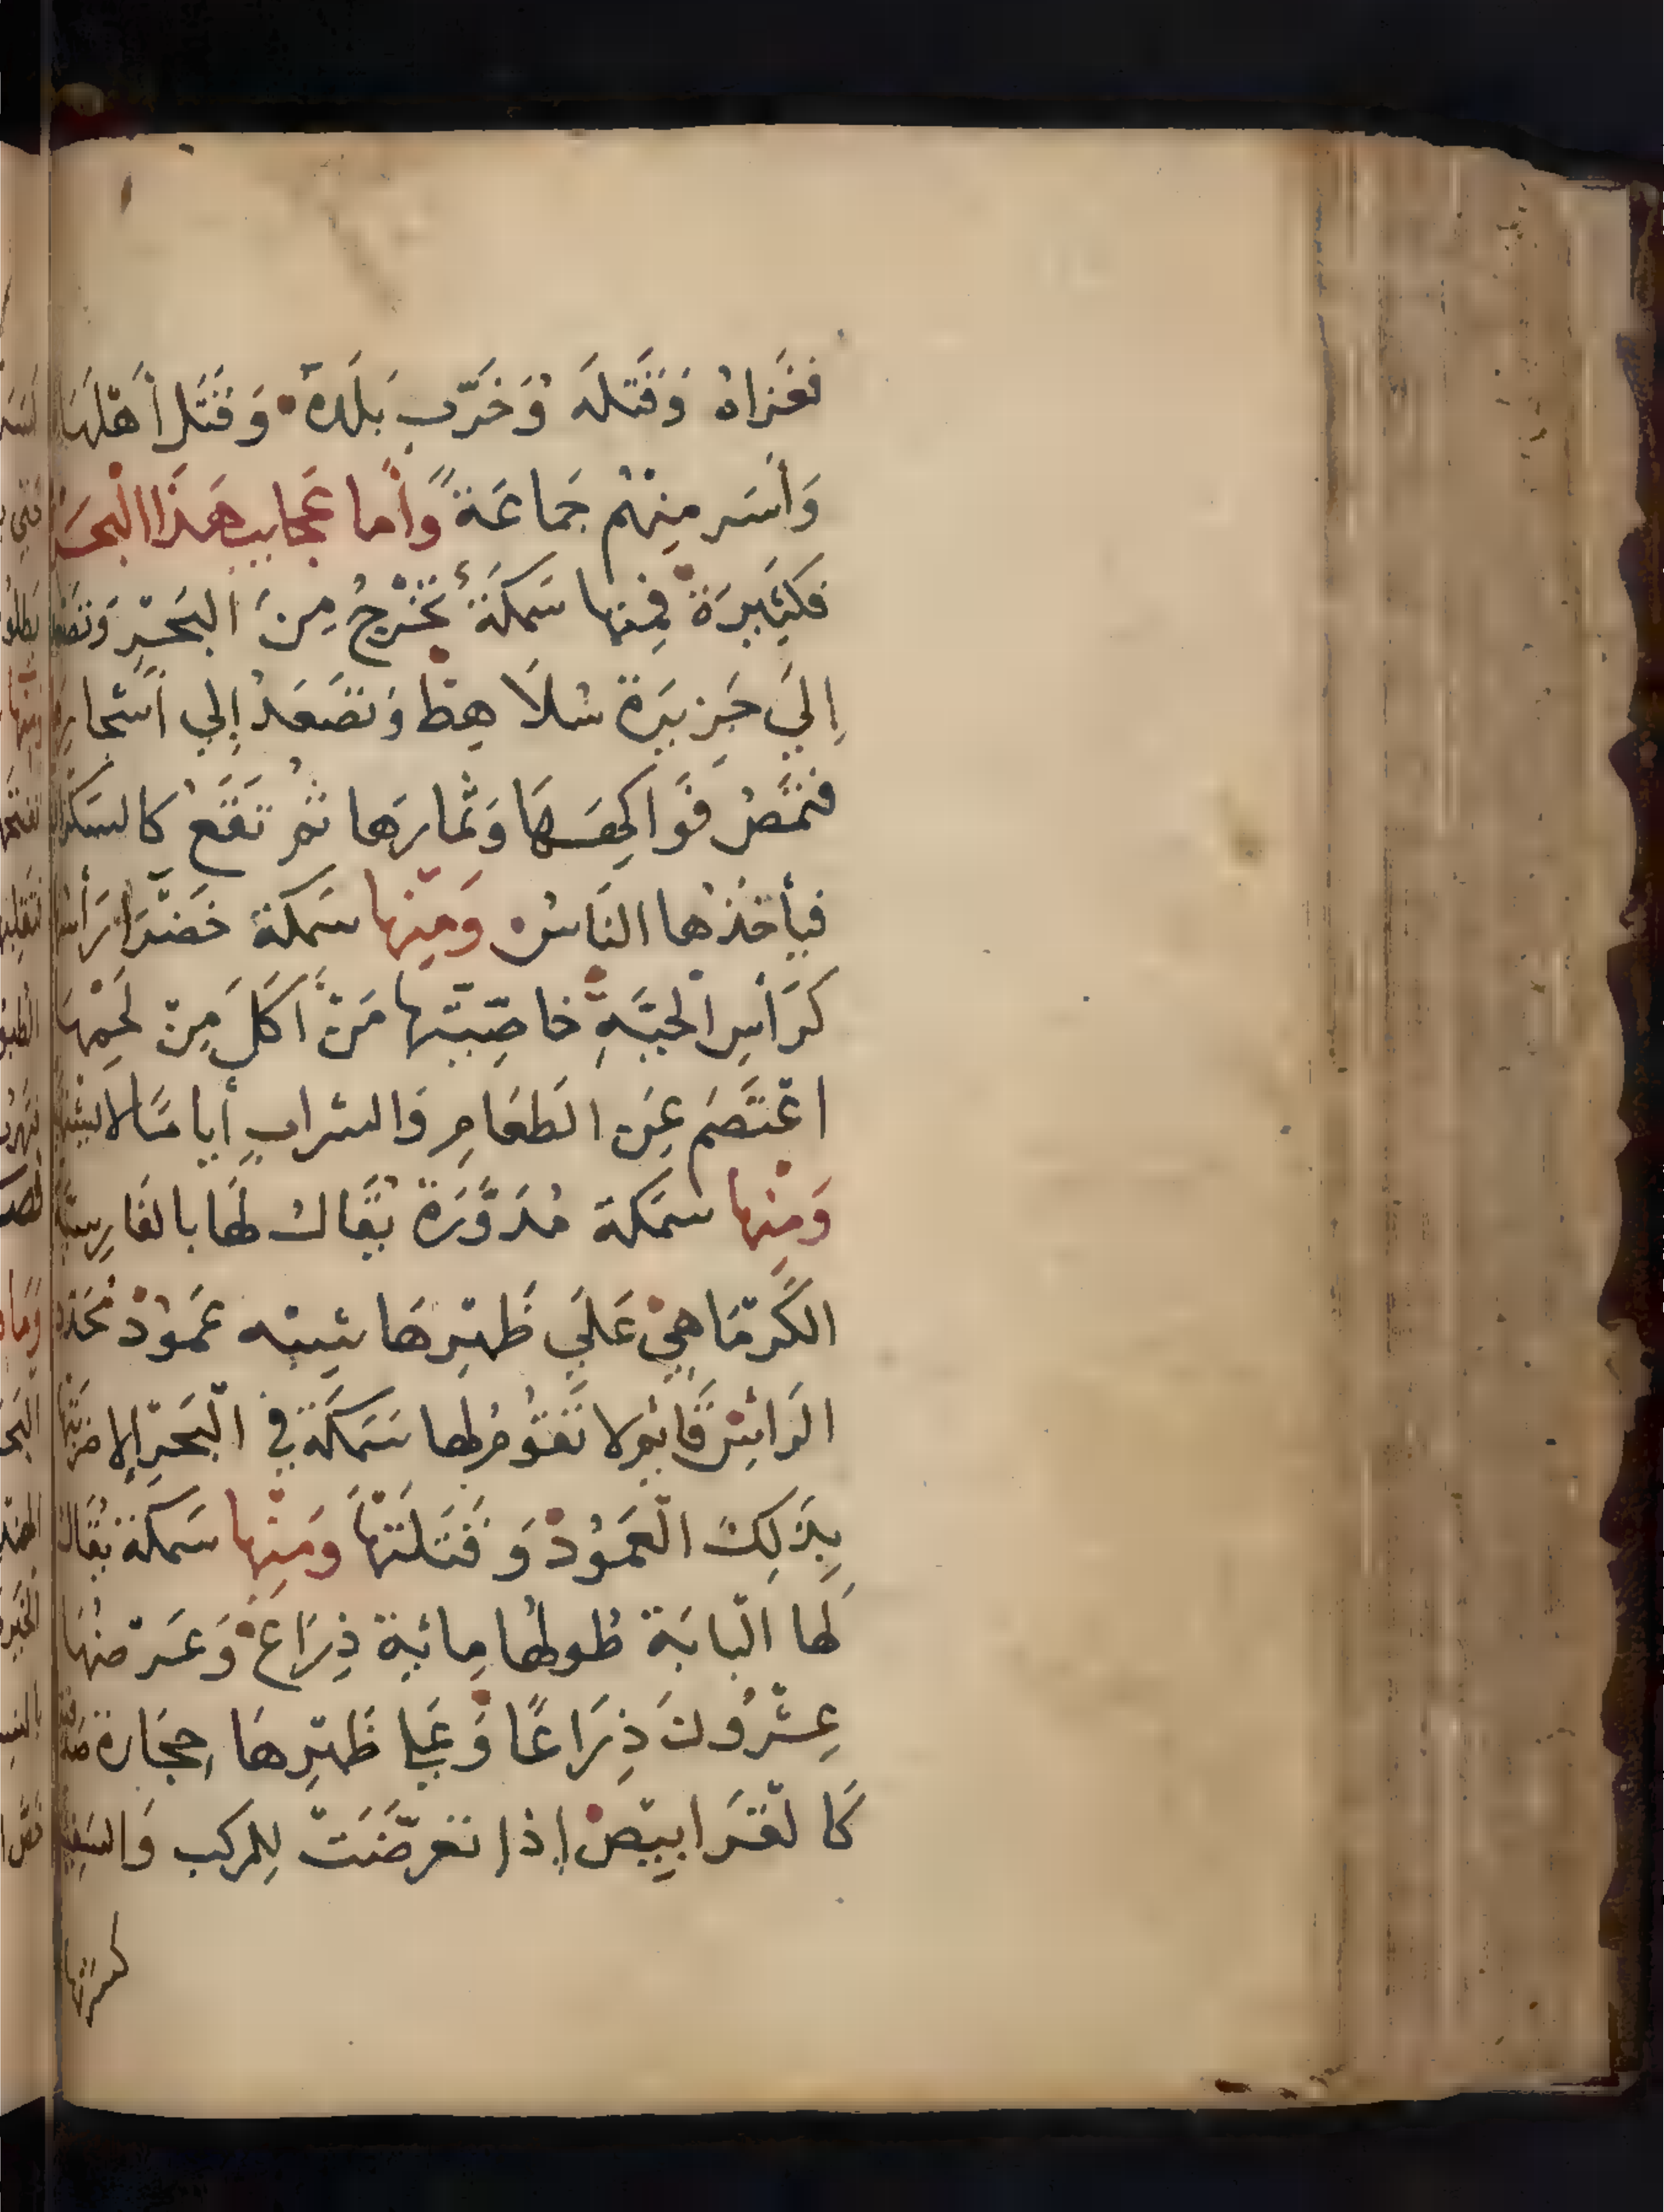 فَغَزَاهُ وَقَتَلَه وَخَرَّبَ بَلَدَهُ وَقَتَلَ أَهْلَهَا
وَأَسَر مِنْهُم جَمَاعَةً وَأَما عَجَايِب هَذَا الْبَحْر
فَكَثِيرَةٌ فَمِنها سَمَكَةٌ تَخْرُجُ مِنَ البَحْرِ
إِلَى جَزِيرَة سَلَاهِط وَتَصْعَدُ إِلي أَشْجَارِهَا
فَتَمُصُّ فَوَاكِهَهَا وَثمارَها ثُمَّ تَقَعُ كالسَكْرَان
فيأخُذُها النَاسُ وَمِنْها سَمَكَة خَضْرَا رَأْسُها
كَرَأْسِ الحَيَّةِ خاصِّيَتها مَنْ أَكَلَ مِنْ لَحْمِهَا
اعْتَصَمَ عَنِ الطَعَامِ وَالشراب أَيامًا لا
وَمِنْها سَمَكَة مُدَوَّرَة يُقَالُ لَهَا بالفَارِسِيَّة
الكَرْمَاهِيْ عَلَي ظَهْرِهَا شِبْه عَمُوْدْ مُحَدَّد
الرَأْسِ قَايم لا تَقُومُ لها سَمَكَة في الْبَحْرِ إِلا ضَرَبَتها
بِذَلِكَ الْعَمُوْدْ وَقَتَلَتْهَا وَمِنْها سَمَكَة يُقَال
لَها الْبَابَة طُولُها مِائية ذِرَاعْ وَعَرْضُهَا
عِشْرُونَ ذِرَاعًا وَعَلي ظَهْرِهَا حِجَارَة
كَالْقَرَابيصْ إِذا تَعَرَّضَتْ لِلمركب وَالسَفِينة
كسرتها